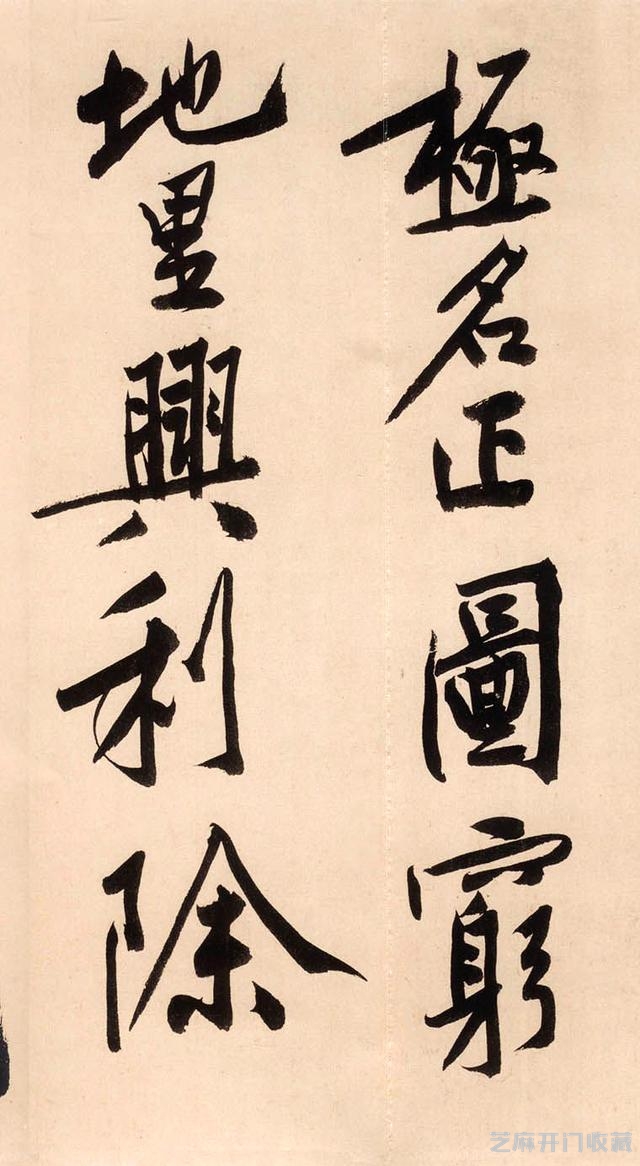 極名正圖窮
地里興利除
芝麻开门收藏